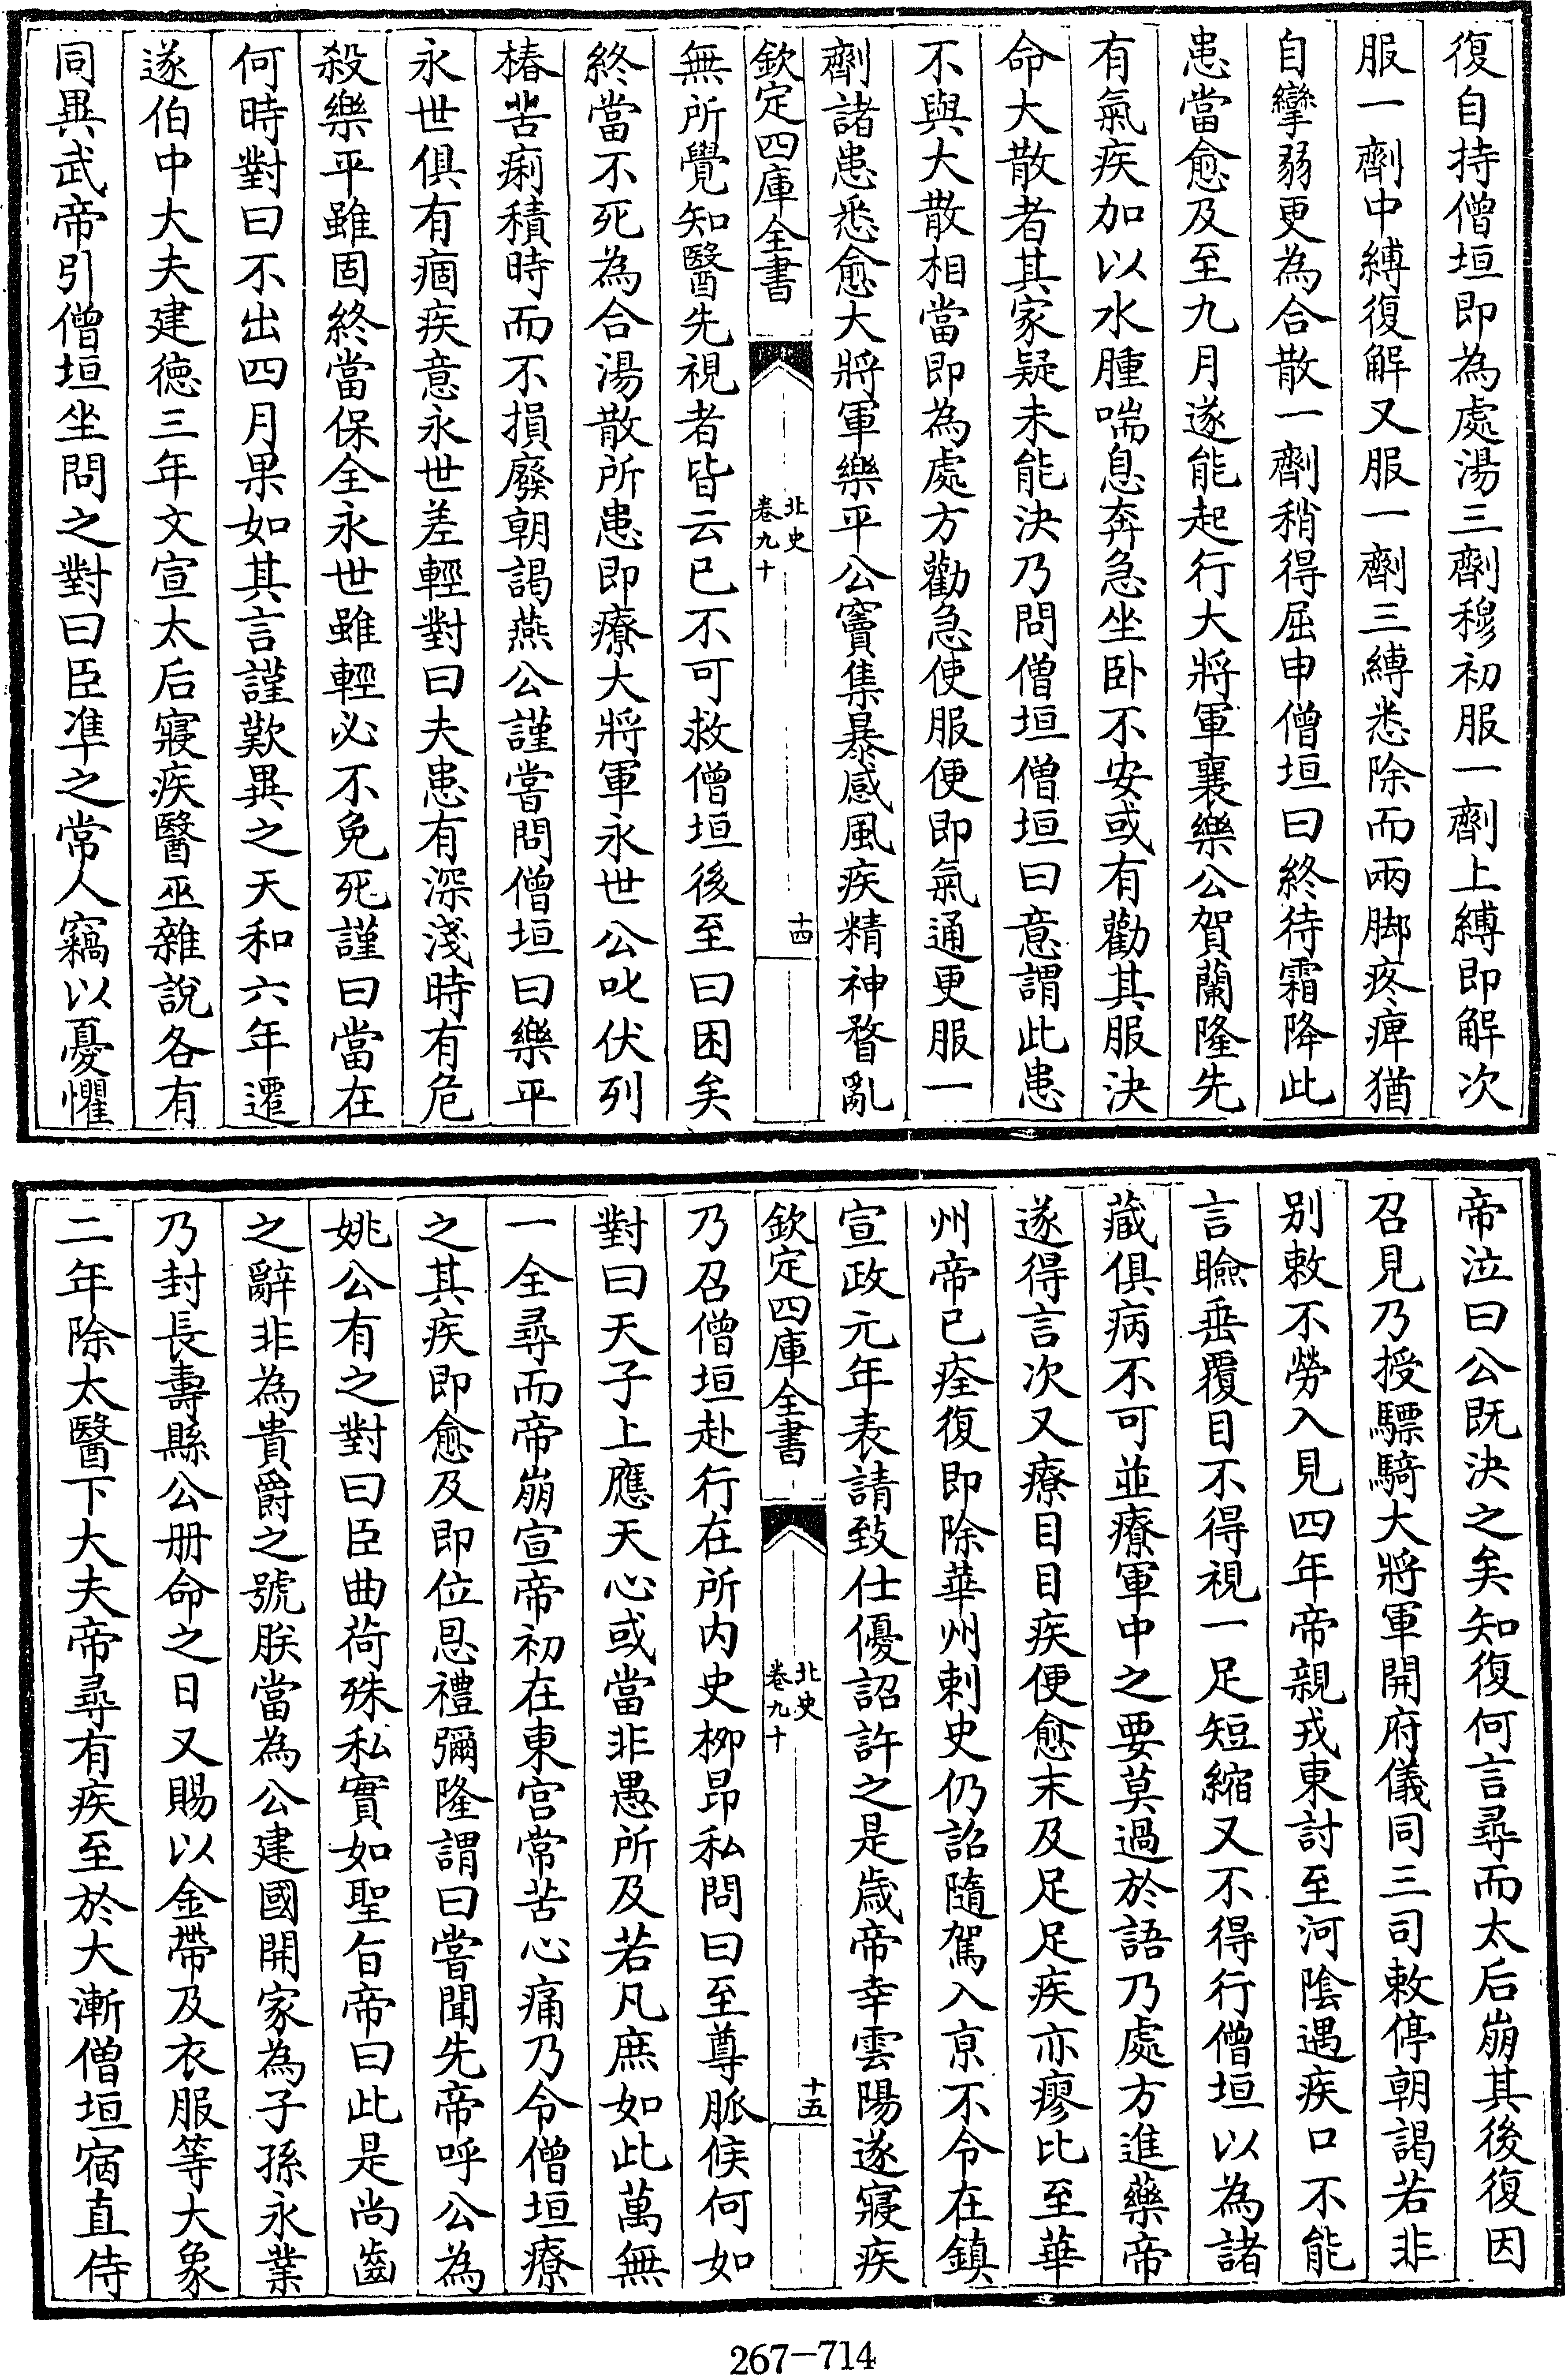 復自持僧垣即為處湯三劑穆初服一劑上縛即解次
服一劑中縛復解又服一劑三縛悉除而兩脚疼痺猶
自攣弱更為合散一劑稍得屈申僧垣曰終待霜降此
患當愈及至九月遂能起行大將軍襄樂公賀蘭隆先
有氣疾加以水腫喘息奔急坐卧不安或有勸其服決
命大散者其家疑未能決乃問僧垣僧垣曰意謂此患
不與大散相當即為處方勸急使服便即氣通更服一
劑諸患悉愈大將軍樂平公竇集暴感風疾精神瞀亂
欽定四庫全書
北史
卷九十
十四
無所覺知醫先視者皆云已不可救僧垣後至曰困矣
終當不死為合湯散所患即療大將軍永世公叱伏列
椿苦痢積時而不損廢朝謁燕公謹嘗問僧垣曰樂平
永世俱有痼疾意永世差輕對曰夫患有深淺時有危
殺樂平雖固終當保全永世雖輕必不免死謹曰當在
何時對曰不出四月果如其言謹歎異之天和六年遷
遂伯中大夫建徳三年文宣太后寢疾醫巫雜說各有
同異武帝引僧垣坐問之對曰臣凖之常人竊以憂懼
帝泣曰公既決之矣知復何言尋而太后崩其後復因
召見乃授驃騎大將軍開府儀同三司敕停朝謁若非
别敕不勞入見四年帝親戎東討至河隂遇疾口不能
言瞼垂覆目不得視一足短縮又不得行僧垣以為諸
藏俱病不可並療軍中之要莫過於語乃處方進藥帝
遂得言次又療目目疾便愈末及足足疾亦瘳比至華
州帝已痊復即除華州刺史仍詔隨駕入京不令在鎮
宣政元年表請致仕優詔許之是歲帝幸雲陽遂寢疾
欽定四庫全書
北史
卷九十
十五
乃召僧垣赴行在所内史柳昂私問曰至尊脈候何如
對曰天子上應天心或當非愚所及若凡庶如此萬無
一全尋而帝崩宣帝初在東宫常苦心痛乃令僧垣療
之其疾即愈及即位恩禮彌隆謂曰嘗聞先帝呼公為
姚公有之對曰臣曲荷殊私實如聖旨帝曰此是尚齒
之辭非為貴爵之號朕當為公建國開家為子孫永業
乃封長壽縣公册命之日又賜以金帶及衣服等大象
二年除太醫下大夫帝尋有疾至於大漸僧垣宿直侍
267-714